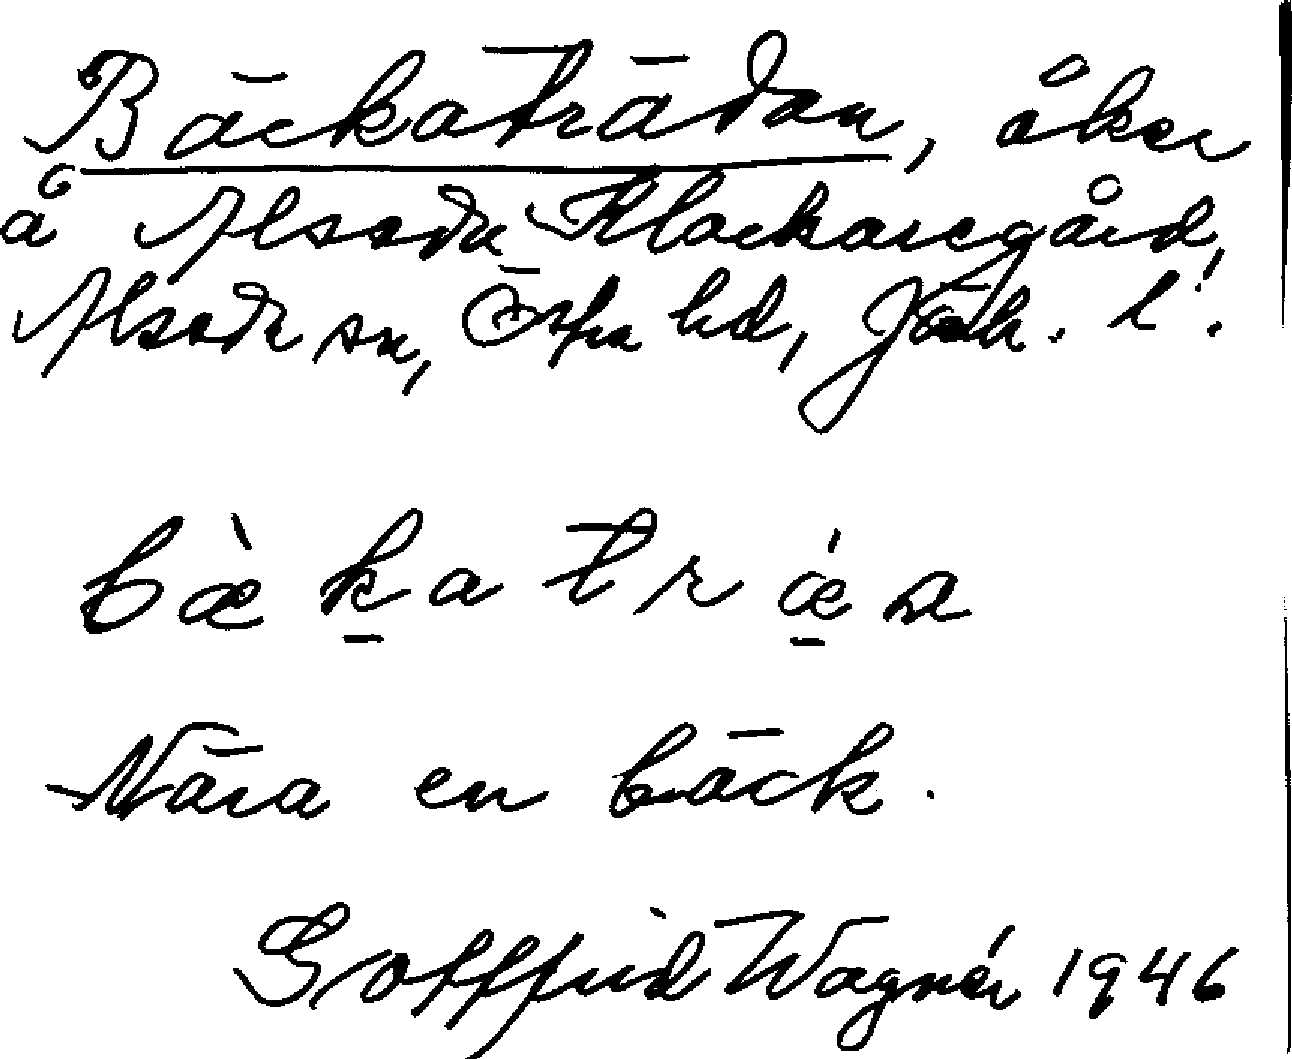 Bäckaträdan, åker
å Alseda Klockaregård,
Alseda sn, Ö hd, Jönk. l.
bæ̀ḵatrǽ̱a
Nära en bäck.
Gottfrid Wagnér 1946